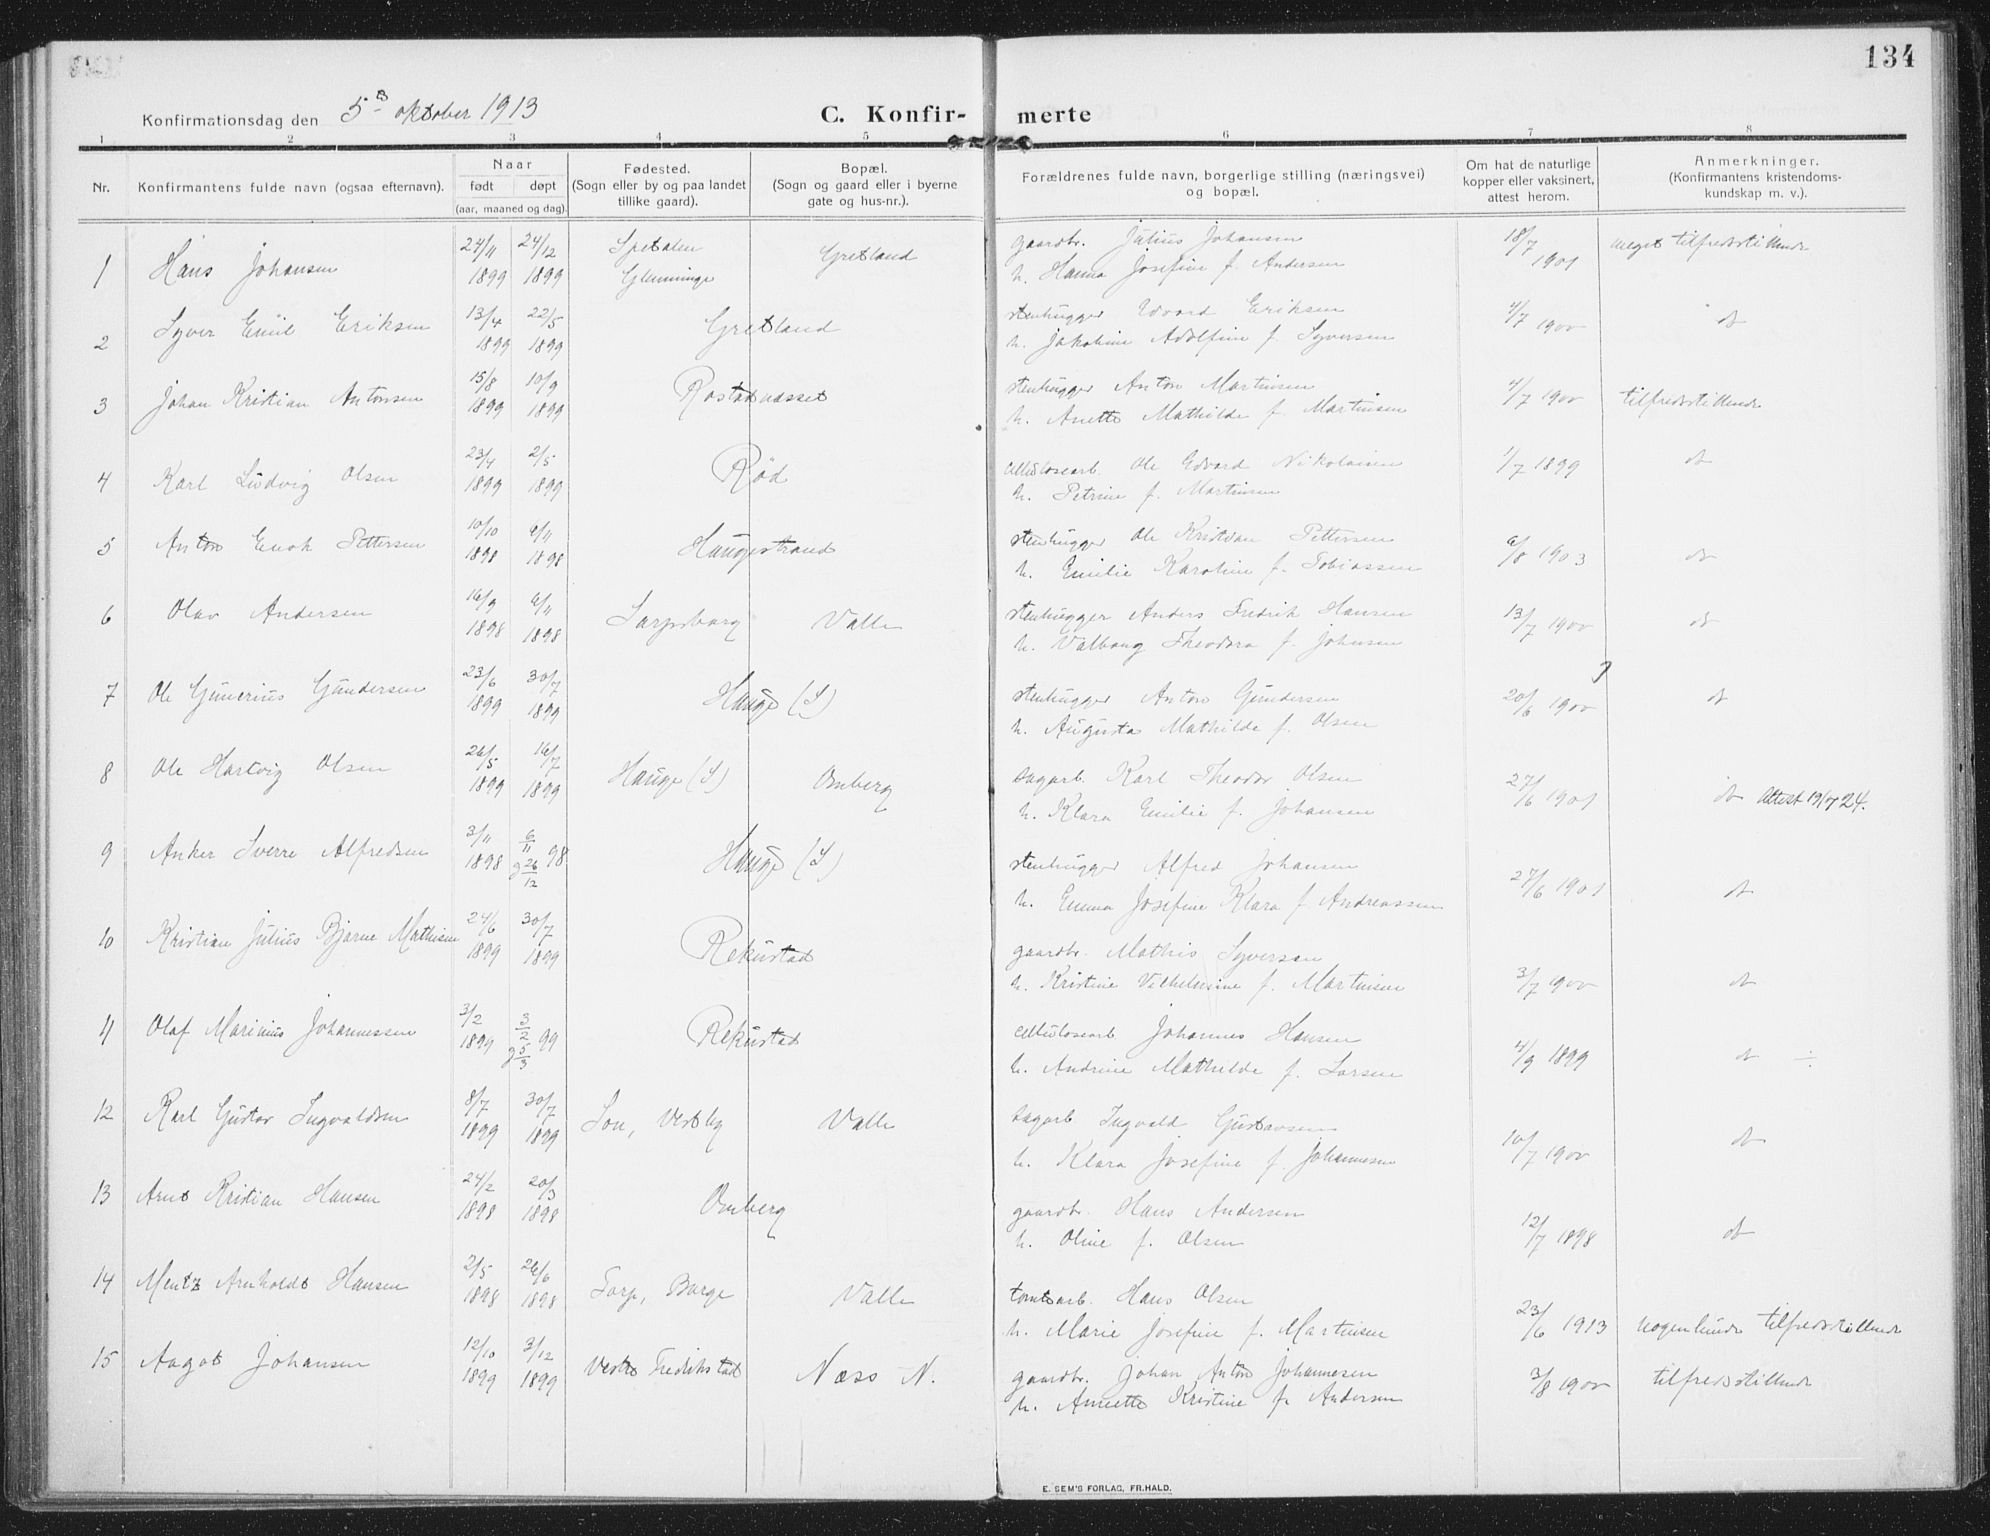 134
Konfirmationsdag den 5 oktober 1913
C. Konfir- merte
1 2 3 4 5 6 7 8
Nr.
Konfirmantens fulde navn (ogsaa efternavn).
Naar
født døpt
(aar, maaned og dag).
Fødested.
(Sogn eller by og paa landet
tillike gaard).
Bopæl.
(Sogn og gaard eller i byerne
gate og hus-nr.).
Forældrenes fulde navn, borgerlige stilling (næringsvei)
og bopæl.
Om hat de naturlige
kopper eller vaksinert,
attest herom.
Anmerkninger.
(Konfirmantens kristendoms-
kundskap m. v.).
1 Hans Johansen 24/11 1899 24/12 1899 Spetalen Glemminge Gretland
gaardbr. Julius Johansen
h. Hanna Josefine f. Andersen
18/7 1901 meget tilfredsstillende
2 Syver Emil Eriksen 13/4 1899 22/5 1899 Gretland
stenhugger Edvard Eriksen
h. Jakobine Adolfine f. Syversen
4/7 1900 do
3 Johan Kristian Antonsen 15/8 1899 10/9 1899 Rostadnæsset
stenhugger Anton Martinsen
h. Anette Mathilde f. Martinsen
4/7 1900 tilfredsstillende
4 Karl Ludvig Olsen 23/4 1899 2/5 1899 Rød
cellulosearb. Ole Edvard Nikolaisen
h. Petrine f. Martinsen
1/7 1899 do
5 Anton Enok Pettersen 10/10 1898 6/11 1898 Haugestrand
stenhugger Ole Kristian Pettersen
h. Emilie Karoline f. Tobiassen
6/8 1903 do
6 Olav Andersen 16/9 1898 6/11 1898 Sarpsborg Valle
stenhugger Anders Fredrik Hansen
h. Valborg Theodora f. Johnsen
13/7 1900 do
7 Ole Gunerius Gundersen 23/6 1899 30/7 1899 Hauge (S)
stenhugger Anton Gundersen
h. Augusta Mathilde f. Olsen
20/6 1900 do
8 Ole Hartvig Olsen 26/5 1899 16/7 1899 Hauge (S) Omberg
sagarb. Karl Theodor Olsen
h. Klara Emilie f. Johansen
27/6 1901 do Attest 19/7 24.
9 Anker Sverre Alfredsen 3/11 1898 6/11 g 26/12 98 Hauge (S)
stenhugger Alfred Johansen
h. Emma Josefine Klara f. Andreassen
27/6 1901 do
10 Kristian Julius Bjarne Mathisen 24/6 1899 30/7 1899 Rekustad
gaardbr. Mathis Syversen
h. Kristine Vilhelmine f. Martinsen
3/7 1900 do
11 Olaf Marinius Johannessen 3/2 1899 3/2 g 5/3 99 Rekustad
cellulosearb Johannes Hansen
h. Andrine Mathilde f. Larsen
4/9 1899 do ÷
12 Karl Gustav Ingvaldsen 8/7 1899 30/7 1899 Son, Vestby Valle
sagarb. Ingvald Gustavsen
h. Klara Josefine f. Johannesen
10/7 1900 do
13 Arnt Kristian Hansen 24/2 1898 20/3 1898 Omberg
gaardbr. Hans Andersen
h. Oline f. Olsen
12/7 1898 do
14 Mentz Arnholdt Hansen 2/5 1898 26/6 1898 Torp, Borge Valle
tomtearb. Hans Olsen
h. Marie Josefine f. Martinsen
23/6 1913 nogenlunde tilfredsstillende
15 Aagot Johansen 12/10 1899 3/12 1899 Vestre Fredrikstad Næss N.
gaardbr. Johan Anton Johannesen
h. Annette Kristine f. Andersen
3/8 1900 tilfredsstillende
E. SEM'S FORLAG, FR.HALD.